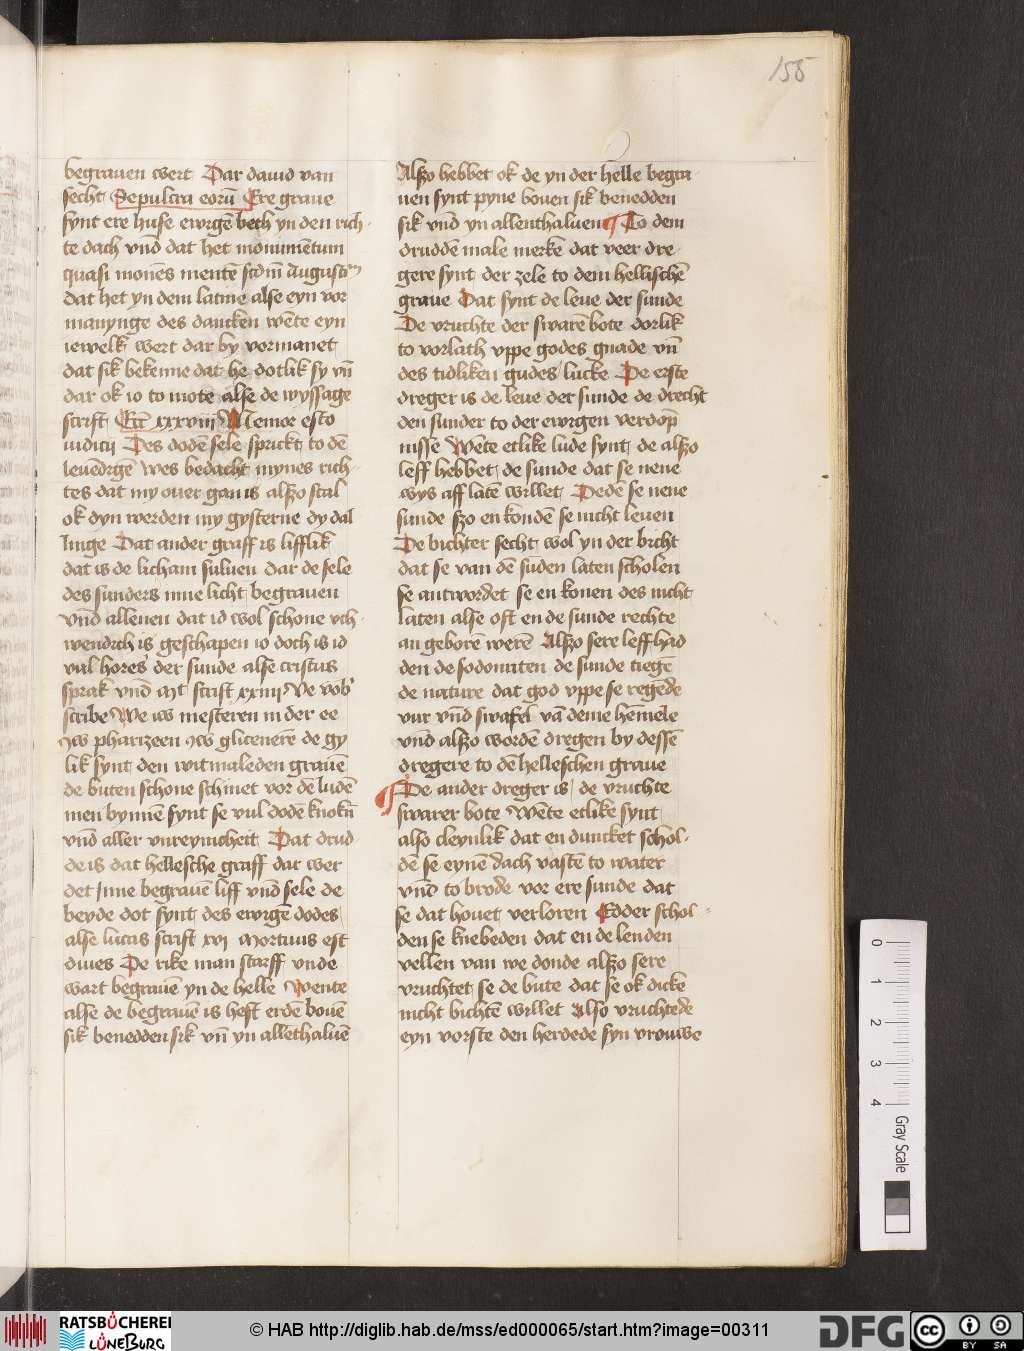 155
begrauen wert Dar dauid van
secht Sepulcra eorū Ere graue
synt ere huse ewigē bech yn den rich
te dach vnd̄ dat het monumētum
quasi monēs mentē scd̄m Augusti
dat het yn dem latine alse eyn vor
manynge des dancken wēte eyn
iewelk wert dar by vormanet
dat sik bekenne dat he dotlik sy vn̄
dar ok io to mote alse de wyssage
scrift xxxviij Memor esto
iudicij Des dodē sele sprickt to dē
leuēdigē Wes bedacht mynes rich
tes dat my ouer gan is alszo scal
ok dyn werden my gysterne dy dal
linge Dat ander graff is lifflik
dat is de licham suluen dar de sele
des sunders inne licht begrauen
vnd̄ alleuen dat id wol schone vth
wendich is geschapen io doch is id
vul hores der sunde alse cristus
sprak vnd̄ mt scrift xxiij Ve vob'
scribe We iw mesteren in der ee
yw pharizeen yw glicenerē de gy
lik synt den witmaleden grauē
de buten schone schinet vor dē ludē
men bynnē synt se vul dodē knokn̄
vnd̄ aller vnreynicheit Dat drud
de is dat hellesche graff dar wer
det Inne begrauē liff vnd̄ sele de
beyde dot synt des ewigē dodes
alse lucas scrift xvi Mortuus est
diues De rike man starff vnde
wart begrauē yn de helle Wente
alse de begrauē is heft erdē bouē
sik benedden sik vn̄ yn allēthaluē
Alszo hebbet ok de yn der helle begra
uen synt pyne bouen sik benedden
sik vnd̄ yn allenthaluen ¶ To dem
druddē male merkē dat veer dre
gere synt der zele to dem hellischē
graue Dat synt de leue der sunde
De vruchte der swarē bote dorlik
to vorlath vppe godes gnade vn̄
des tidliken gudes lucke De erste
dreger is de leue der sunde de drecht
den sunder to der ewigen verdop̄
nisse Wēte etlike lude synt de alszo
leff hebbet de sunde dat se nene
wys aff latē willet Dedē se nene
sunde szo en kondē se nicht leuen
De bichter secht wol yn der bicht
dat se van dē sūden laten scholen
se antwordet se en konen des nicht
laten alse oft en de sunde rechte
an geborē werē Alszo sere leff had
den de sodomiten de sunde tiegē
de nature dat god vppe se regēde
vur vnd̄ swafel vā deme hēmele
vnd̄ alszo wordē dregen by dessē
dregere to dē helleschen graue
¶ De ander dreger is de vruchte
swarer bote Wēte etlike synt
also cleynlik dat en duncket schol
dē se eynē dach vastē to water
vnd̄ to brode vor ere sunde dat
se dat houet verloren Edder schol
den se knebeden dat en de lenden
vellen van we donde alszo sere
vruchtet se de bute dat se ok dicke
nicht bichtē willet Also vruchtede
eyn vorste den herdede syn vrouwe
0
1
2
3
4
Gray Scale
RATSBÜCHEREI
LÜNEBURG
© HAB http://diglib.hab.de/mss/ed000065/start.htm?image=00311
DFG
cc
BY SA